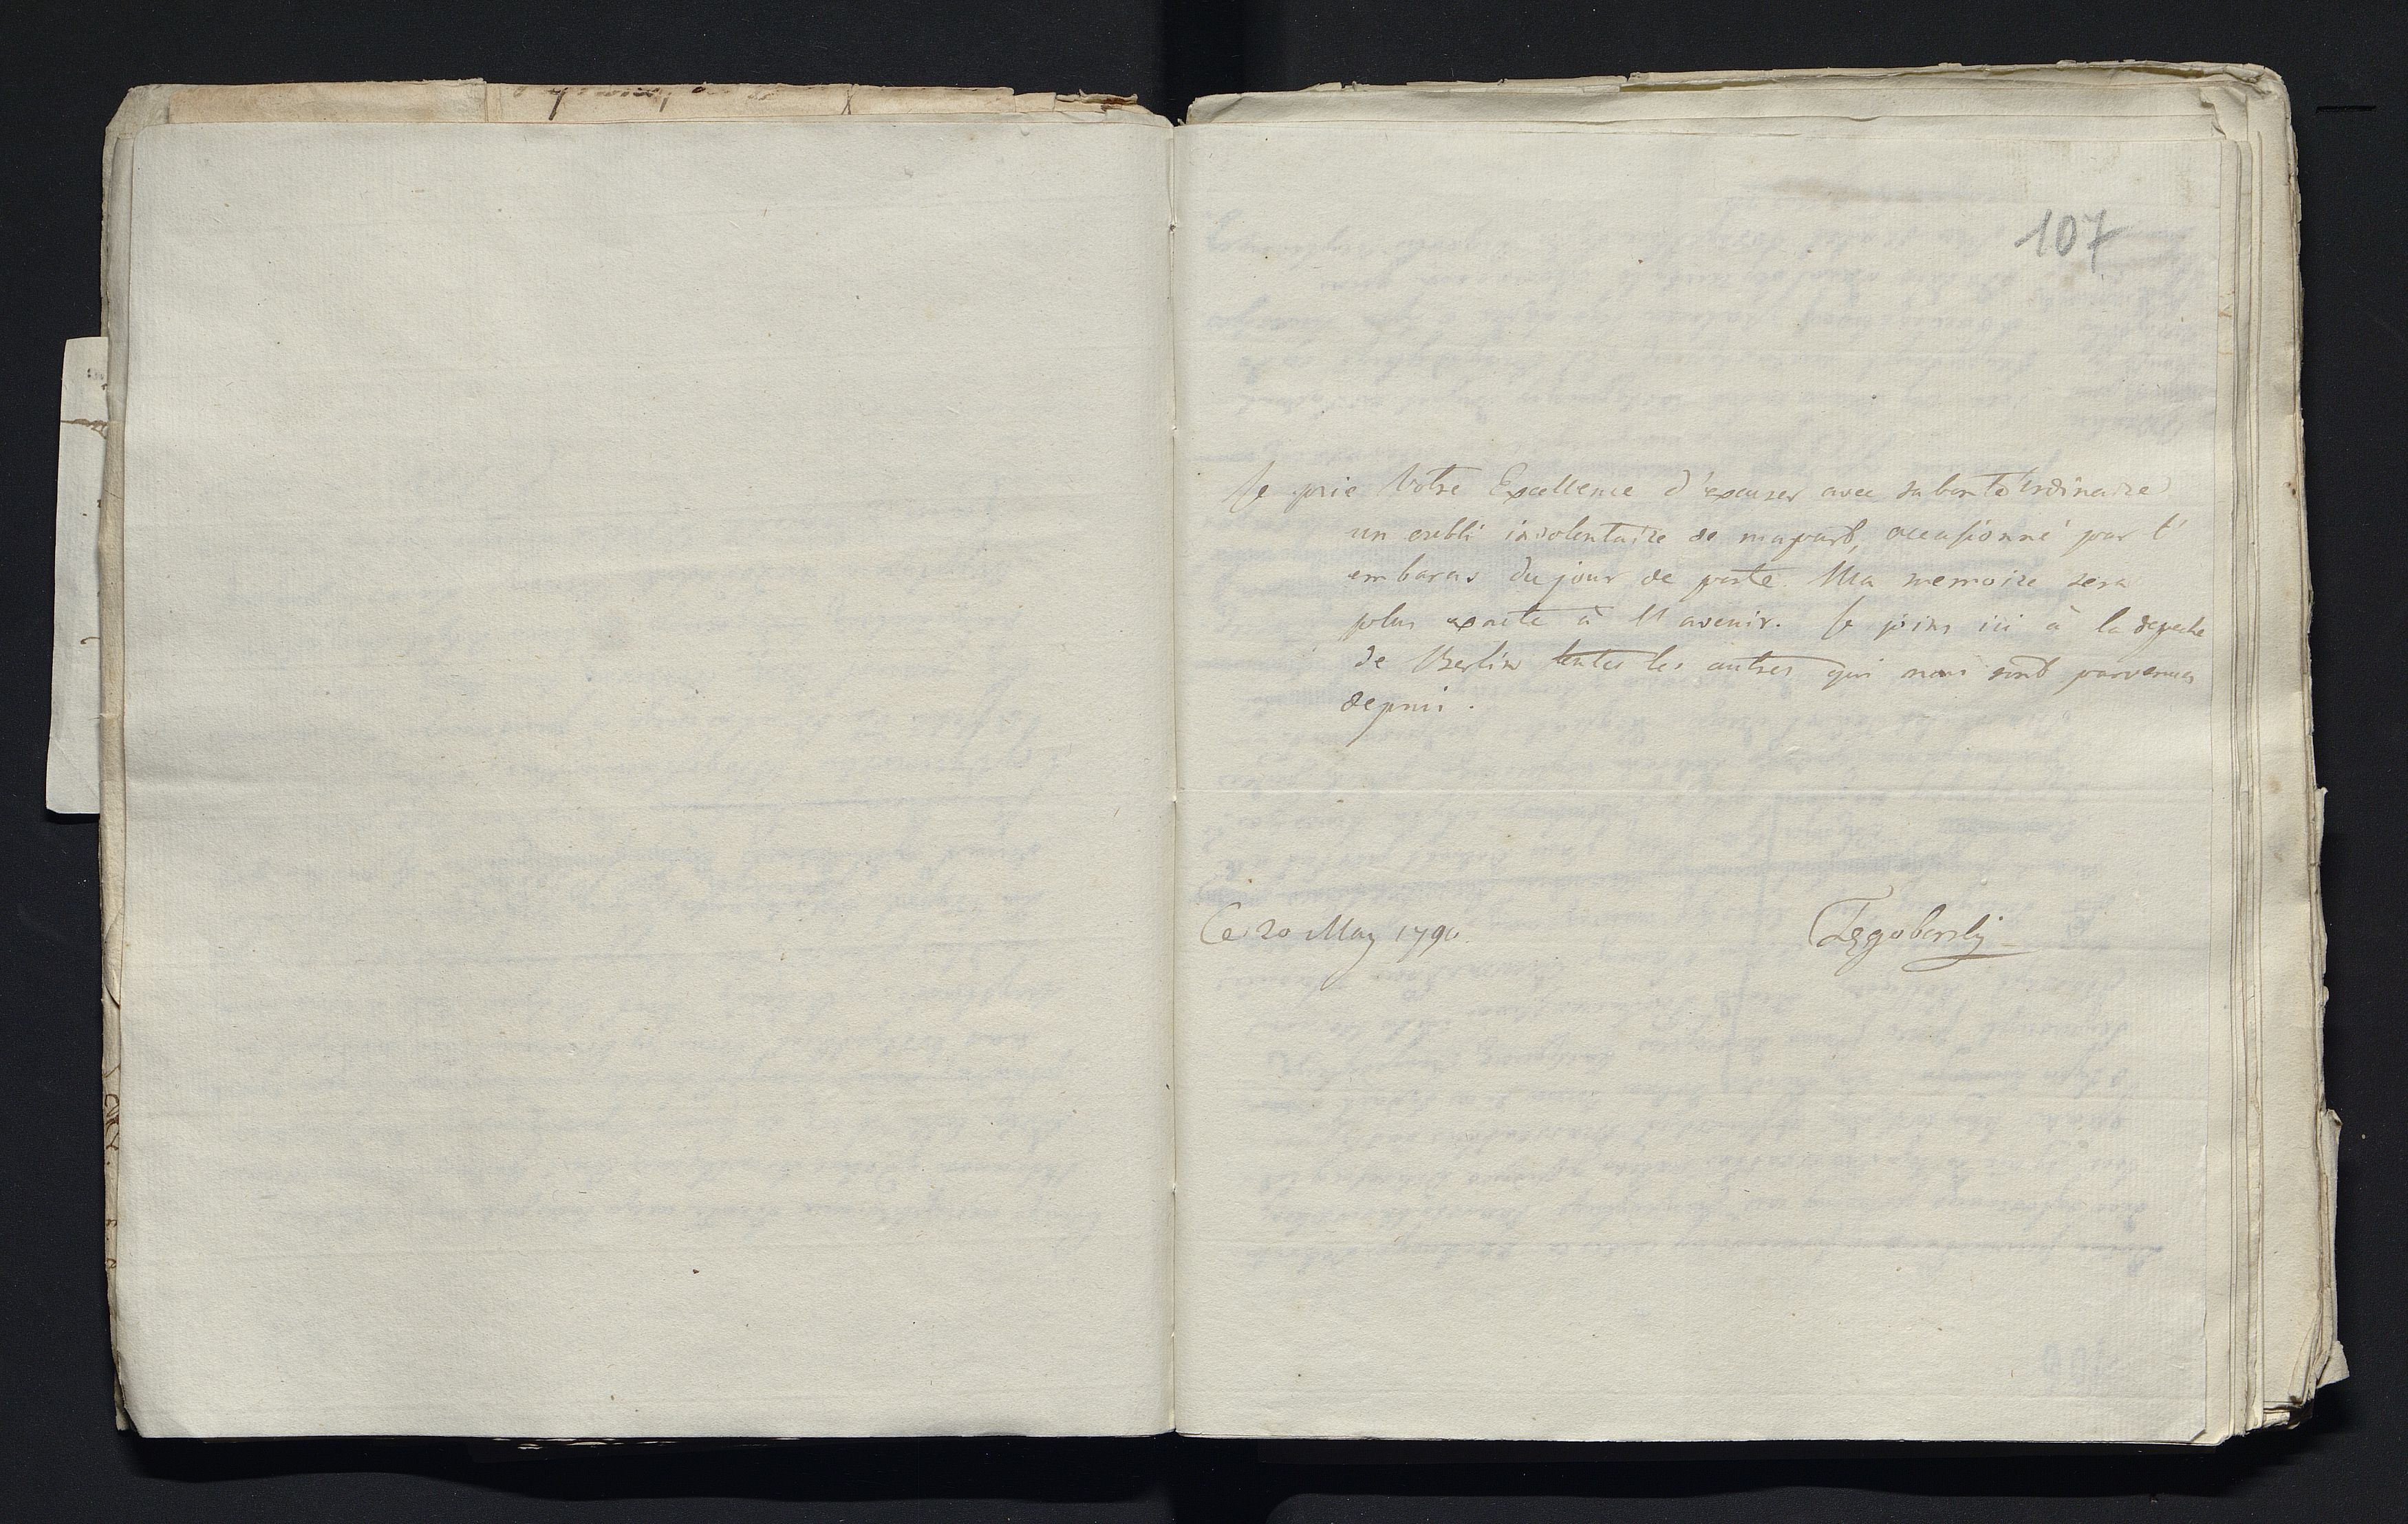 107
Je prie Votre Excellence d'excuser avec sa bonté ordinaire
un oubli involontaire de ma part, occasionné par l'
embaras du jour de poste. Ma memoire sera
plus exacte à l'avenir. Je joins ici à la depeche
de Berlin toutes les autres qui nous sont parvenues
depuis.
Ce 20 May 1790.
Tęgoborski